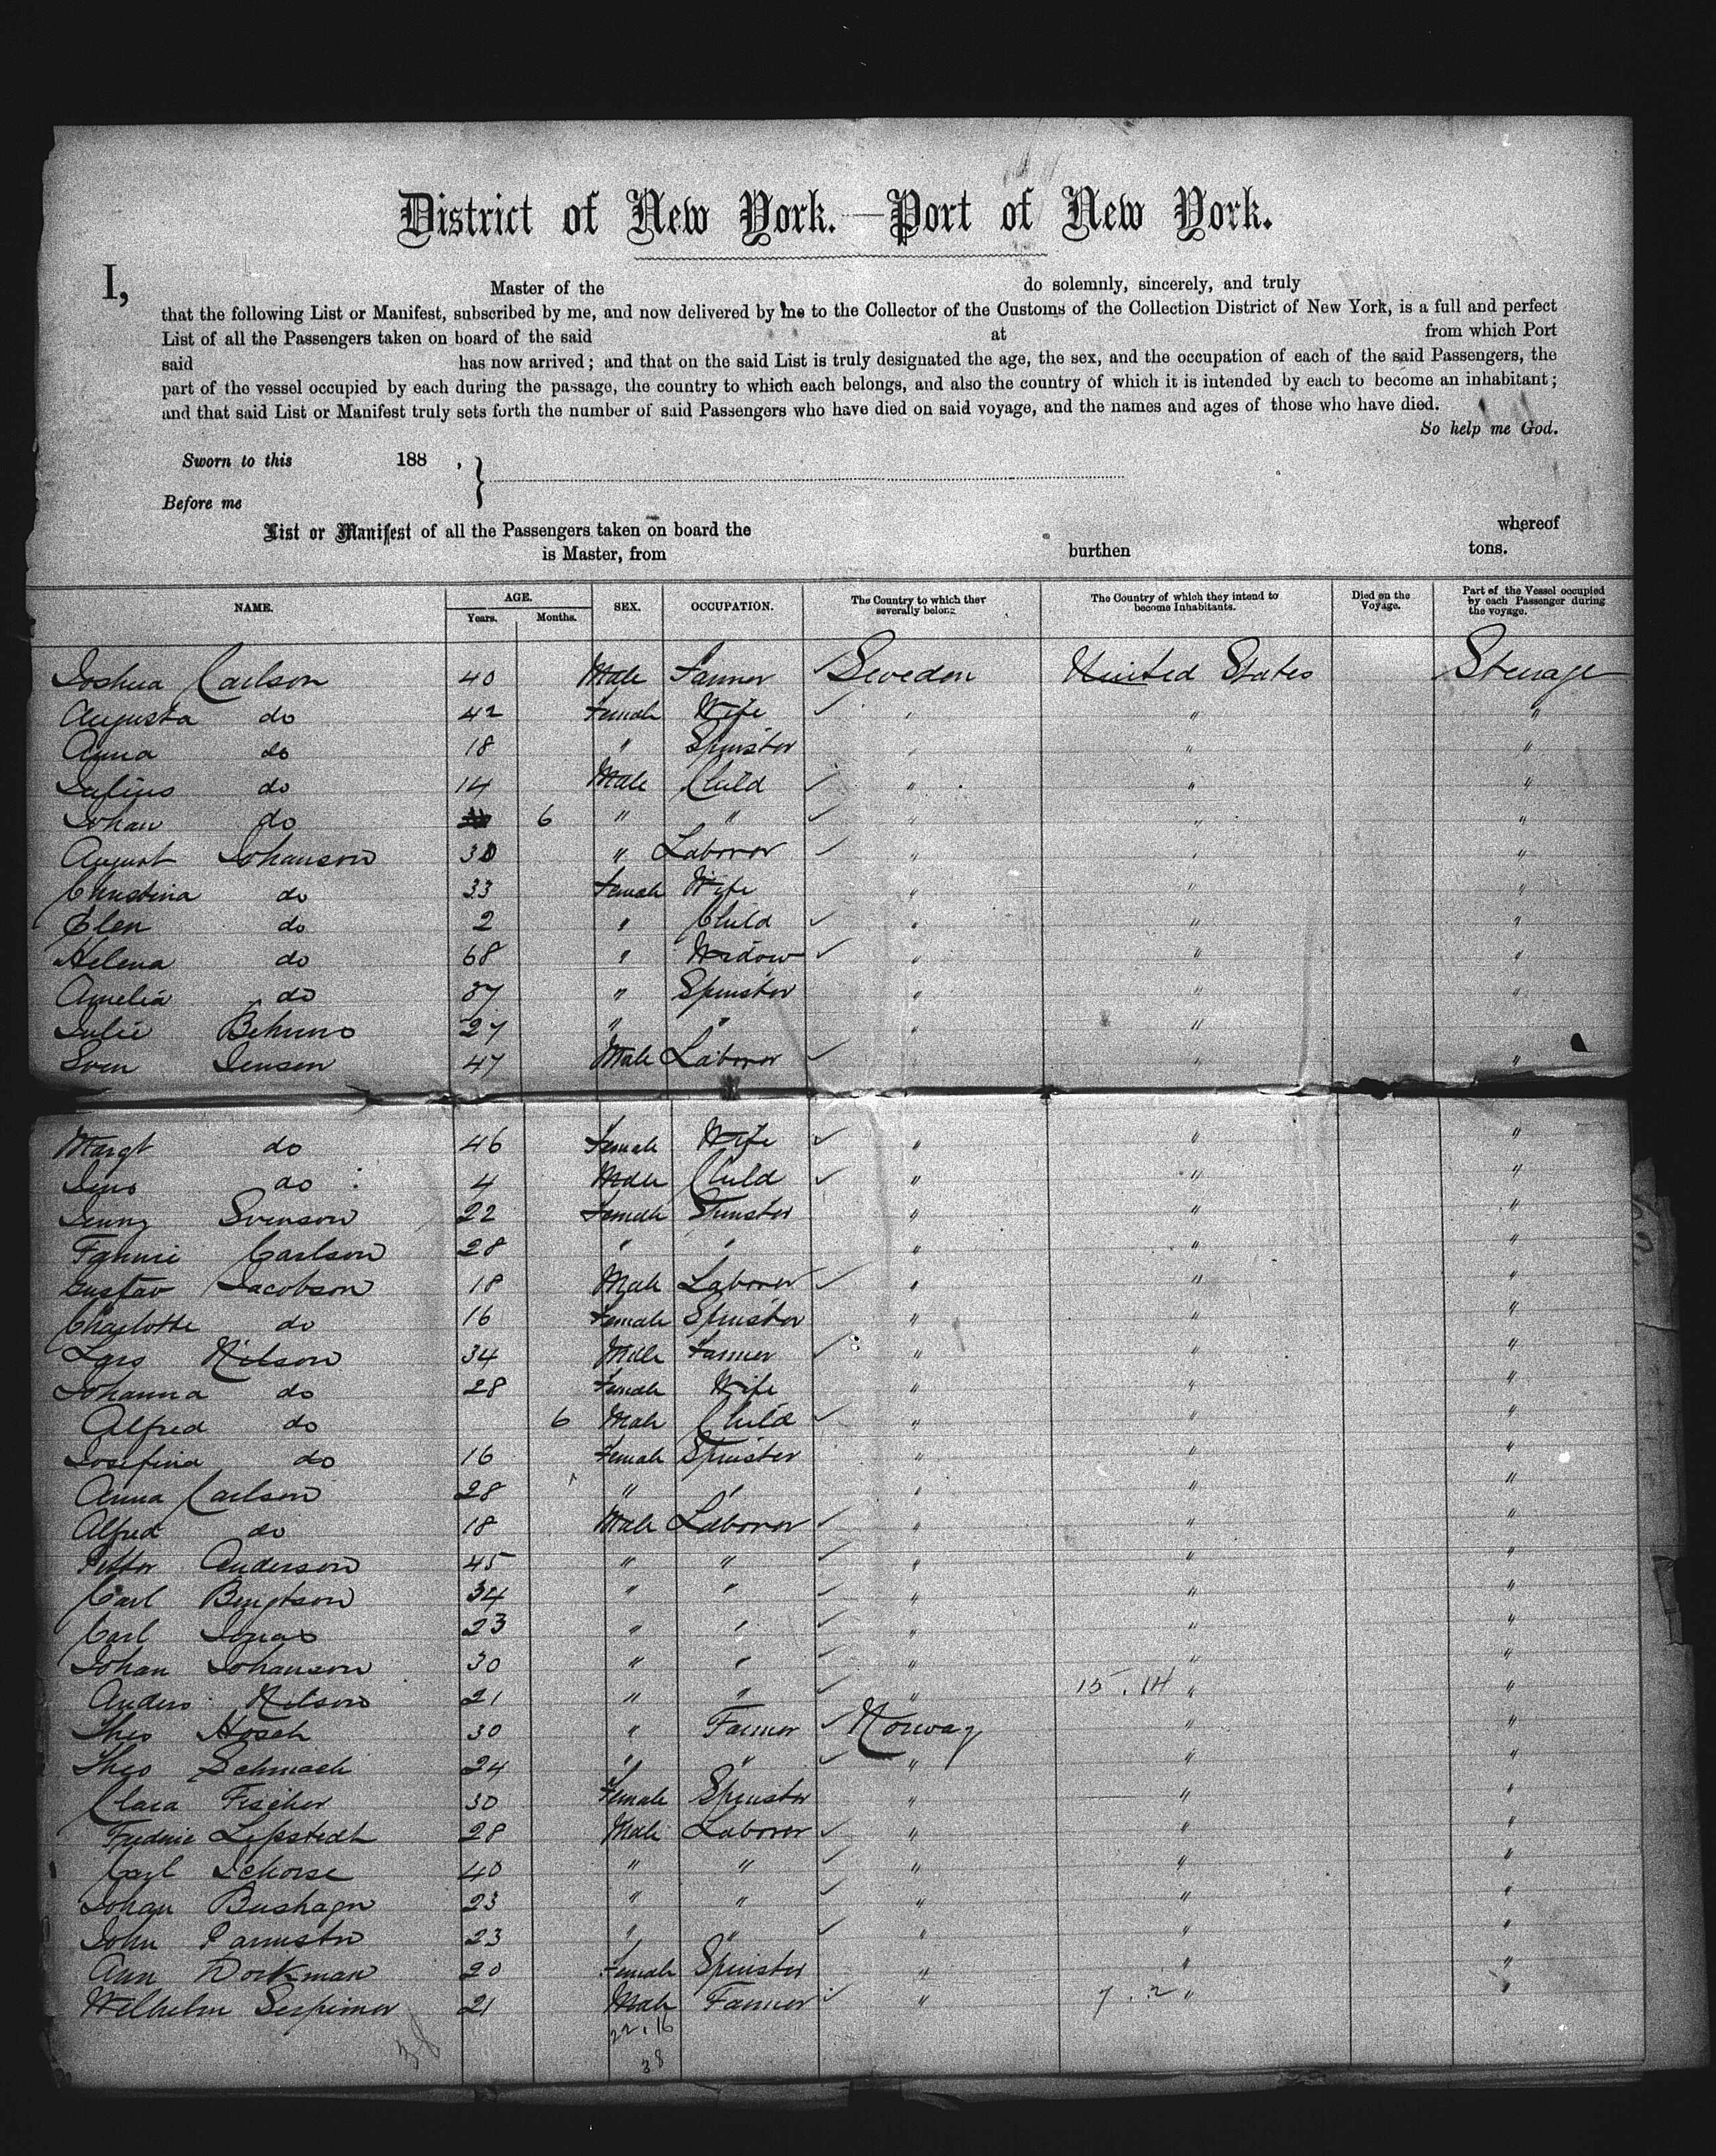 District of New York.—Port of New York.
I, Master of the do solemnly, sincerely, and truly
that the following List or Manifest, subscribed by me, and now delivered by me to the Collector of the Customs of the Collection District of New York, is a full and perfect
List of all the Passengers taken on board of the said at from which Port
said has now arrived; and that on the said List is truly designated the age, the sex, and the occupation of each of the said Passengers, the
part of the vessel occupied by each during the passage, the country to which each belongs, and also the country of which it is intended by each to become an inhabitant;
and that said List or Manifest truly sets forth the number of said Passengers who have died on said voyage, and the names and ages of those who have died.
So help me God.
Sworn to this 188 ,
Before me
List or Manifest of all the Passengers taken on board the whereof
is Master, from burthen tons.
NAME. AGE. Years. Months. SEX. OCCUPATION. The Country to which they severally belong. The Country of which they intend to become Inhabitants. Died on the Voyage. Part of the Vessel occupied by each Passenger during the voyage.
Joshua Carlson 40 Male Farmer Sweden United States Steerage
Augusta do 42 Female Wife " " "
Anna do 18 " Spinster " " "
Julius do 14 Male Child " " "
Johan do 6 " " " " "
August Johanson 30 " Laborer " " "
Christina do 33 Female Wife " " "
Elen do 2 " Child " " "
Helena do 68 " Widow " " "
Amelia do 37 " Spinster " " "
Julie 27 " " " " "
Sven Jenson 47 Male Laborer " " "
Margt do 46 Female Wife " " "
Jens do 4 Male Child " " "
Jenny Svenson 22 Female Spinster " " "
Fannie Carlson 28 " " " " "
Gustav Jacobson 18 Male Laborer " " "
Charlotte do 16 Female Spinster " " "
Lars Nilson 34 Male Farmer " " "
Johanna do 28 Female Wife " " "
Alfred do 6 Male Child " " "
Josefina do 16 Female Spinster " " "
Anna Carlson 28 " " " " "
Alfred do 18 Male Laborer " " "
Petter Anderson 45 " " " " "
Carl Bengtson 34 " " " " "
Carl Jonas 23 " " " " "
Johan Johanson 30 " " " " "
Anders Nilson 21 " " " 15 . 14 " "
Theo Hosch 30 " Farmer Norway " "
Theo Schmach 24 " " " " "
Clara Fischer 30 Female Spinster " " "
Frederic Lipstedt 28 Male Laborer " " "
Carl Schorse 40 " " " " "
Johan Bushagn 23 " " " " "
John 23 " " " " "
Ann Dorkman 20 Female Spinster " " "
Wilhelm 21 Male Farmer " 7 . 2 " "
38 22 . 16
38